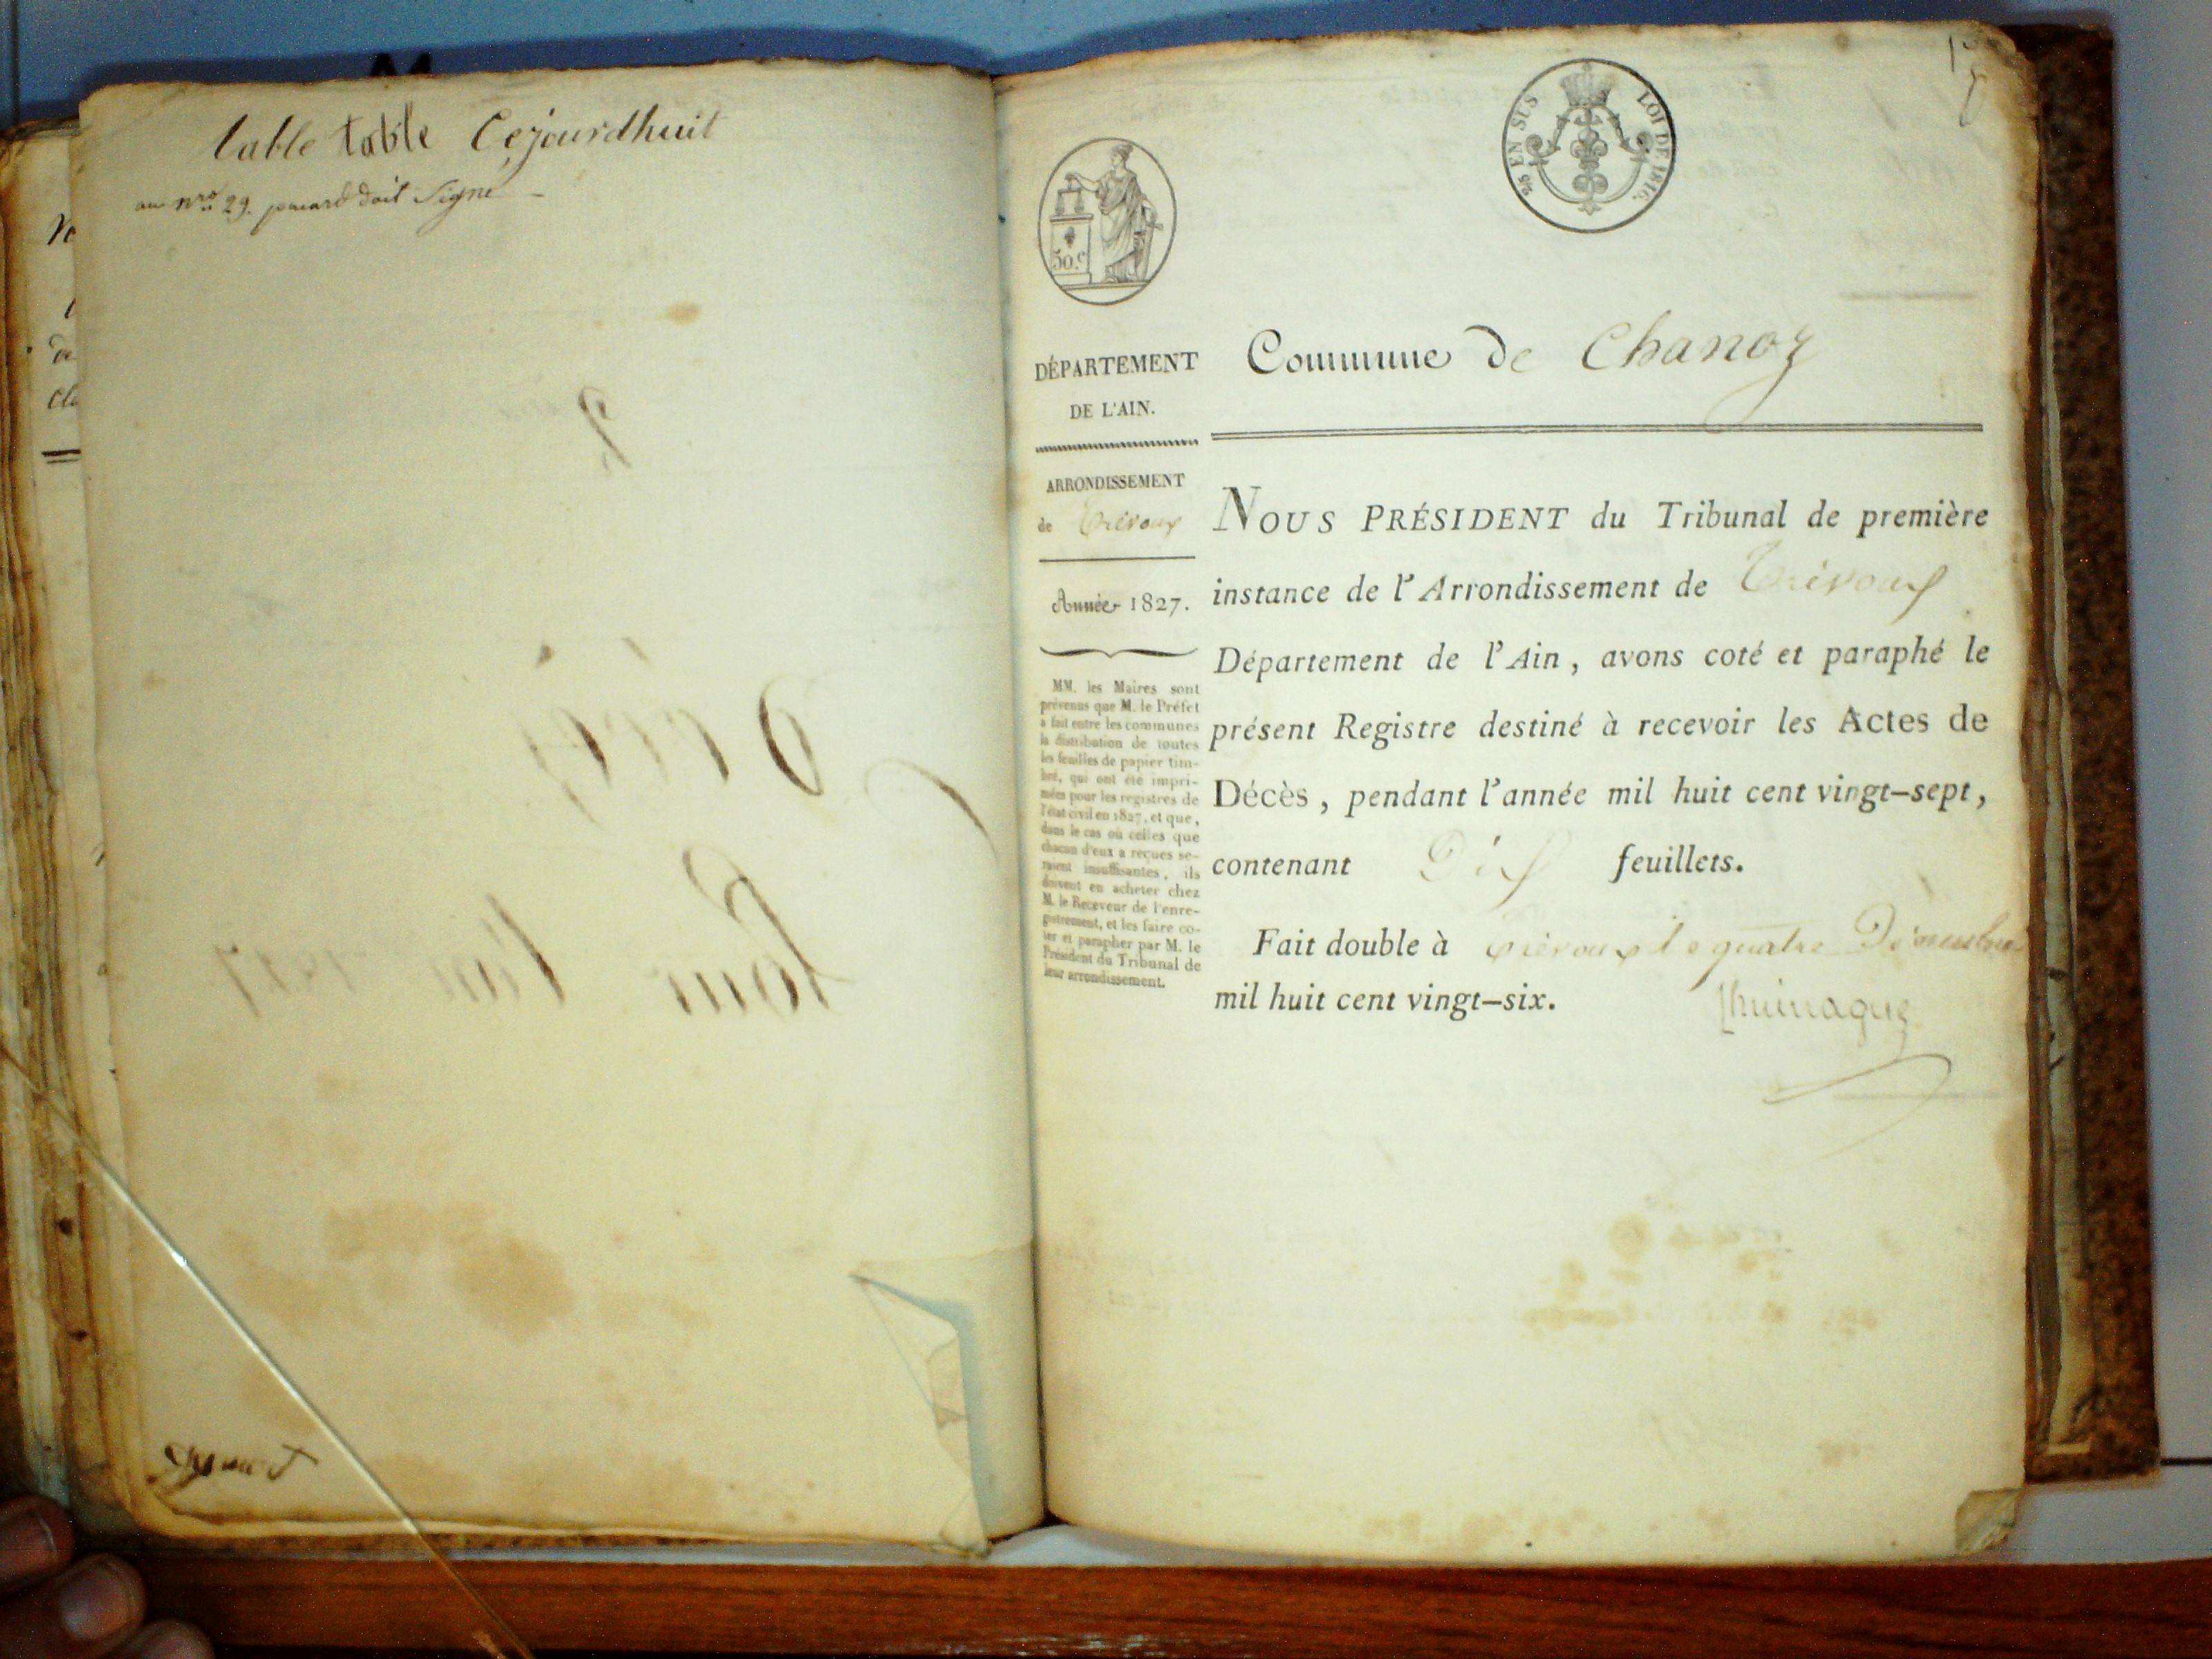 table table Cejourdhuit
au nro 29. doit signé
50.c
25 EN SUS
LOI DE 1816.
DÉPARTEMENT
DE L'AIN.
ARRONDISSEMENT
de Trévoux
Année 1827.
MM. les Maires sont
prévenus que M. le Préfet
a fait entre les communes
la distribution de toutes
les feuilles de papier tim-
bré, qui ont été impri-
mées pour les registres de
l'état civil en 1827, et que,
dans le cas où celles que
chacun d'eux a reçues se-
raient insuffisantes, ils
doivent en acheter chez
M. le Receveur de l'enre-
gistrement, et les faire co-
ter et parapher par M. le
Président du Tribunal de
leur arrondissement.
Commune de Chanoz
NOUS PRÉSIDENT du Tribunal de première
instance de l'Arrondissement de Trévoux
Département de l'Ain, avons coté et paraphé le
présent Registre destiné à recevoir les Actes de
Décès, pendant l'année mil huit cent vingt-sept,
contenant Dix feuillets.
Fait double à Trévoux le quatre Décembre
mil huit cent vingt-six.
Décès
Pour l'an 1827